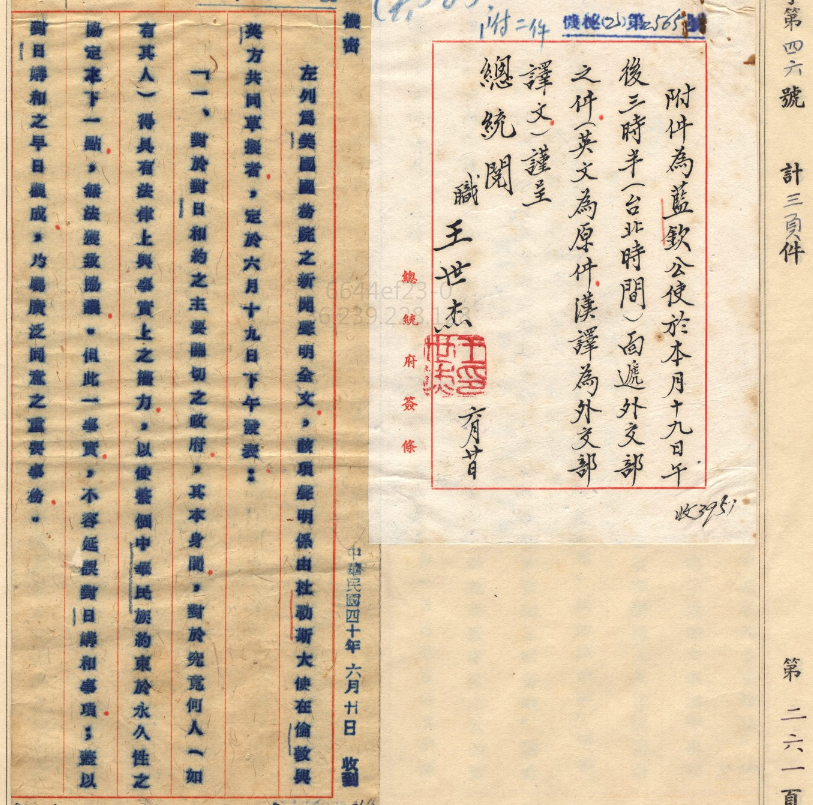 第四六號
計三頁件
第二六一頁
附二件
機秘(乙)第2565號
附件為藍欽公使於本月十九日午
後三時半(台北時間)面遞外交部
之件(英文為原件漢譯為外交部
譯文)謹呈
總統閱
職王世杰
六月廿日
收3951
總統府簽條
機密
中華民國四十年六月廿日收到
左列爲美國國務院之新聞聲明全文,該項聲明係由杜勒斯大使在倫敦與
英方共同草擬者,定於六月十九日下午發表:
「一、對於對日和約之主要關切之政府,其本身間,對於究竟何人(如
有其人)得具有法律上與事實上之權力,以使整個中華民族約束於永久性之
協定之下一點,無法獲致協議。但此一事實,不容延誤對日講和事項;蓋以
對日講和之早日觀成,乃屬廣泛同意之重要事務。